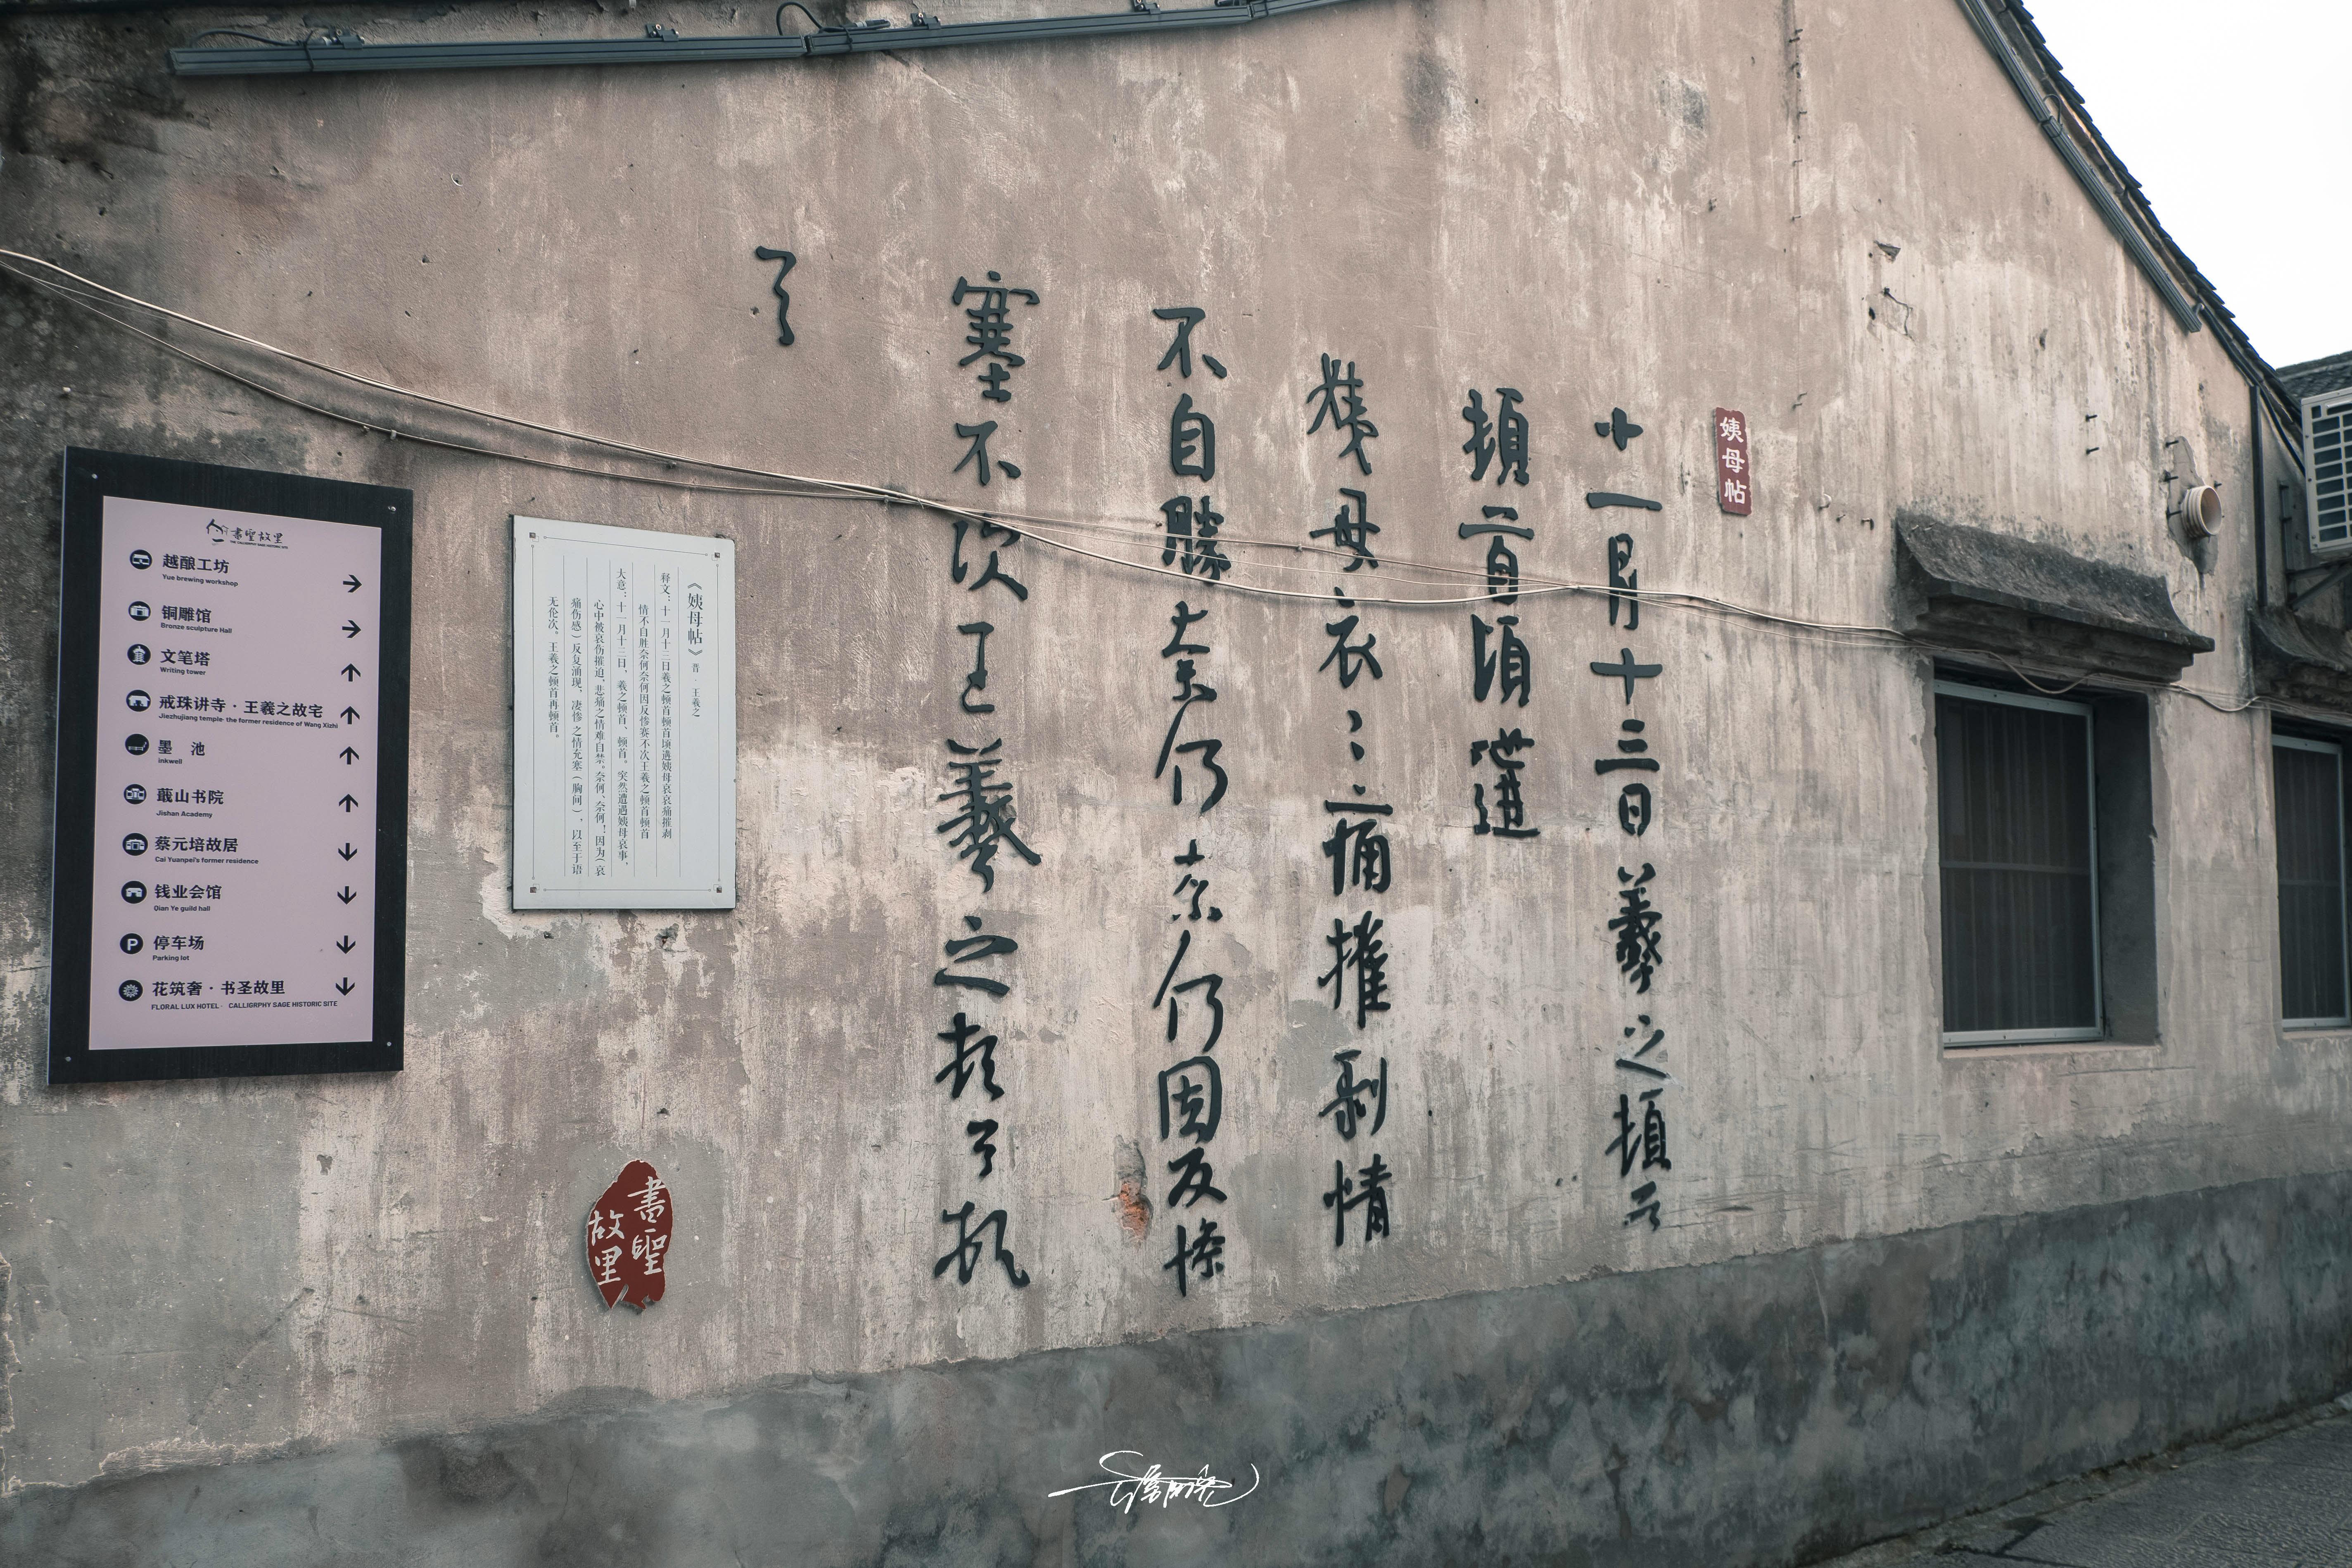 書聖故里
THE CALLIGRPHY SAGE HISTORIC SITE
越酿工坊
Yue brewing workshop
铜雕馆
Bronze sculpture Hall
文笔塔
Writing tower
戒珠讲寺·王羲之故宅
Jiezhujiang temple· the former residence of Wang Xizhi
墨 池
inkwell
蕺山书院
Jishan Academy
蔡元培故居
Cai Yuanpei's former residence
钱业会馆
Qian Ye guild hall
P 停车场
Parking lot
花筑奢·书圣故里
FLORAL LUX HOTEL· CALLIGRPHY SAGE HISTORIC SITE
《姨母帖》 晋·王羲之
释文：十一月十三日羲之顿首顿首顷遘姨母哀哀痛摧剥
情不自胜奈何奈何因反惨塞不次王羲之顿首顿首
大意：十一月十三日，羲之顿首、顿首。突然遭遇姨母哀事，
心中被哀伤摧迫，悲痛之情难自禁。奈何、奈何！因为（哀
痛伤感）反复涌现，凄惨之情充塞（胸间），以至于语
无伦次。王羲之顿首再顿首。
姨母帖
十一月十三日羲之頓首
頓首頃遘
姨母哀〻痛摧剥情
不自勝奈何奈何因反惨
塞不次王羲之頓首頓
首
書聖
故里